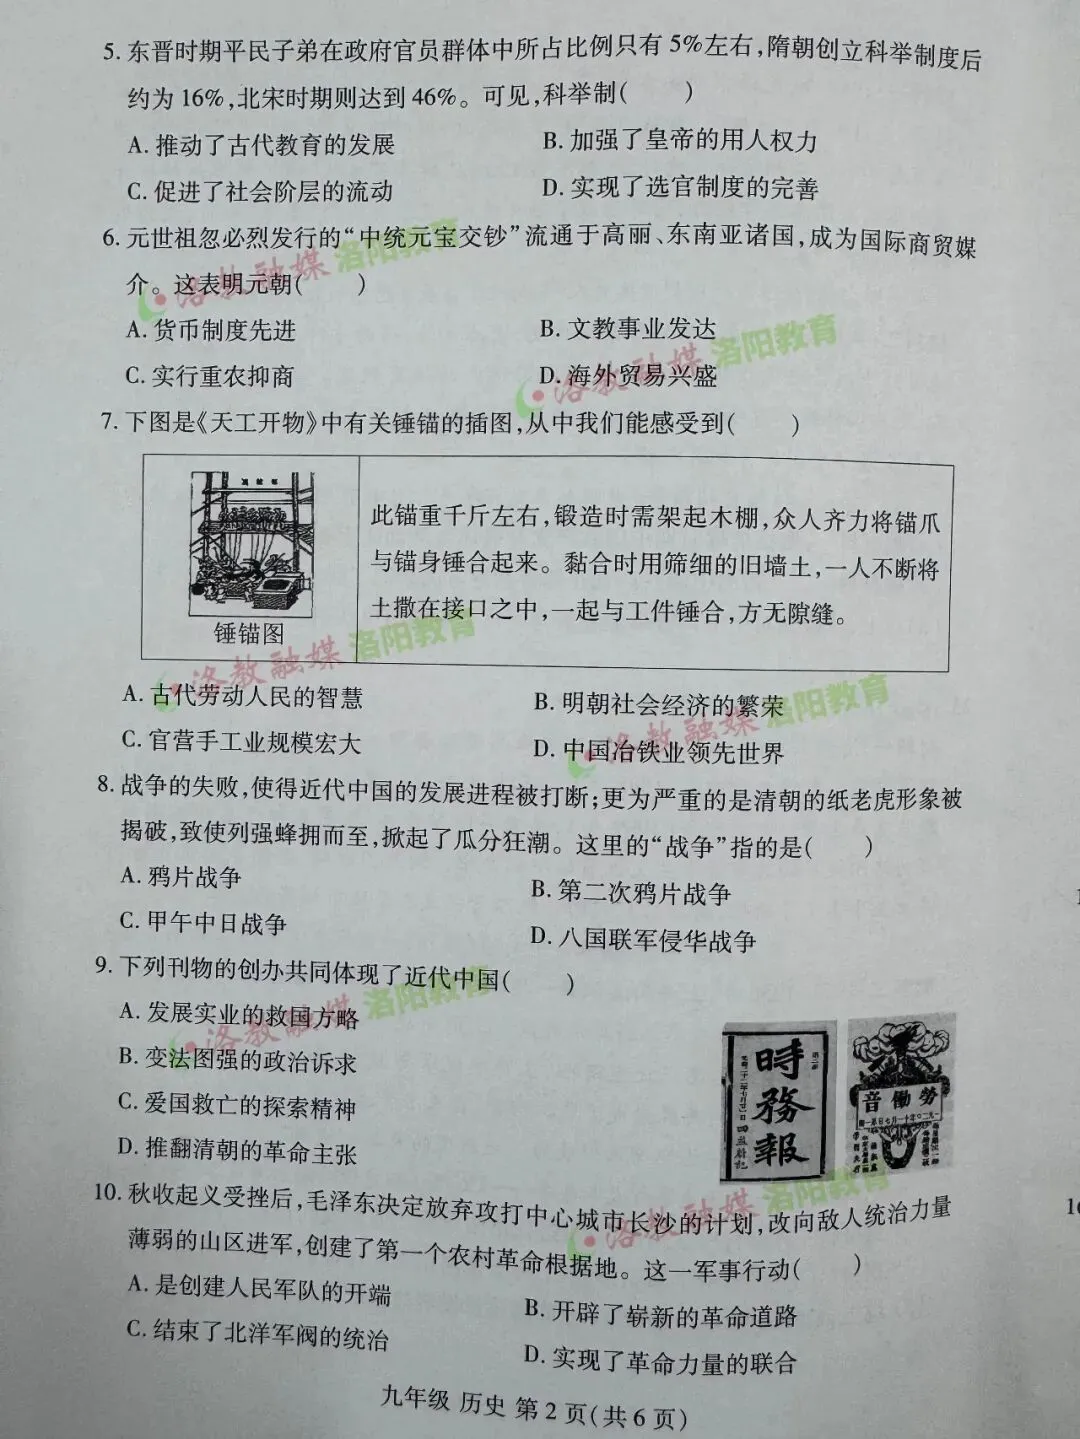 5. 东晋时期平民子弟在政府官员群体中所占比例只有 5%左右,隋朝创立科举制度后
约为 16%,北宋时期则达到 46%。可见,科举制(　　)
A. 推动了古代教育的发展 B. 加强了皇帝的用人权力
C. 促进了社会阶层的流动 D. 实现了选官制度的完善
6. 元世祖忽必烈发行的“中统元宝交钞”流通于高丽、东南亚诸国,成为国际商贸媒
介。这表明元朝(　　)
A. 货币制度先进 B. 文教事业发达
C. 实行重农抑商 D. 海外贸易兴盛
7. 下图是《天工开物》中有关锤锚的插图,从中我们能感受到(　　)
锤锚图
此锚重千斤左右,锻造时需架起木棚,众人齐力将锚爪
与锚身锤合起来。黏合时用筛细的旧墙土,一人不断将
土撒在接口之中,一起与工件锤合,方无隙缝。
A. 古代劳动人民的智慧 B. 明朝社会经济的繁荣
C. 官营手工业规模宏大 D. 中国冶铁业领先世界
8. 战争的失败,使得近代中国的发展进程被打断;更为严重的是清朝的纸老虎形象被
揭破,致使列强蜂拥而至,掀起了瓜分狂潮。这里的“战争”指的是(　　)
A. 鸦片战争 B. 第二次鸦片战争
C. 甲午中日战争 D. 八国联军侵华战争
9. 下列刊物的创办共同体现了近代中国(　　)
A. 发展实业的救国方略
B. 变法图强的政治诉求
C. 爱国救亡的探索精神
D. 推翻清朝的革命主张
時務報
音働勞
10. 秋收起义受挫后,毛泽东决定放弃攻打中心城市长沙的计划,改向敌人统治力量
薄弱的山区进军,创建了第一个农村革命根据地。这一军事行动(　　)
A. 是创建人民军队的开端 B. 开辟了崭新的革命道路
C. 结束了北洋军阀的统治 D. 实现了革命力量的联合
九年级 历史 第 2 页(共 6 页)
洛教融媒 洛阳教育
洛教融媒 洛阳教育
洛教融媒 洛阳教育
洛教融媒 洛阳教育
洛教融媒 洛阳教育
洛教融媒 洛阳教育